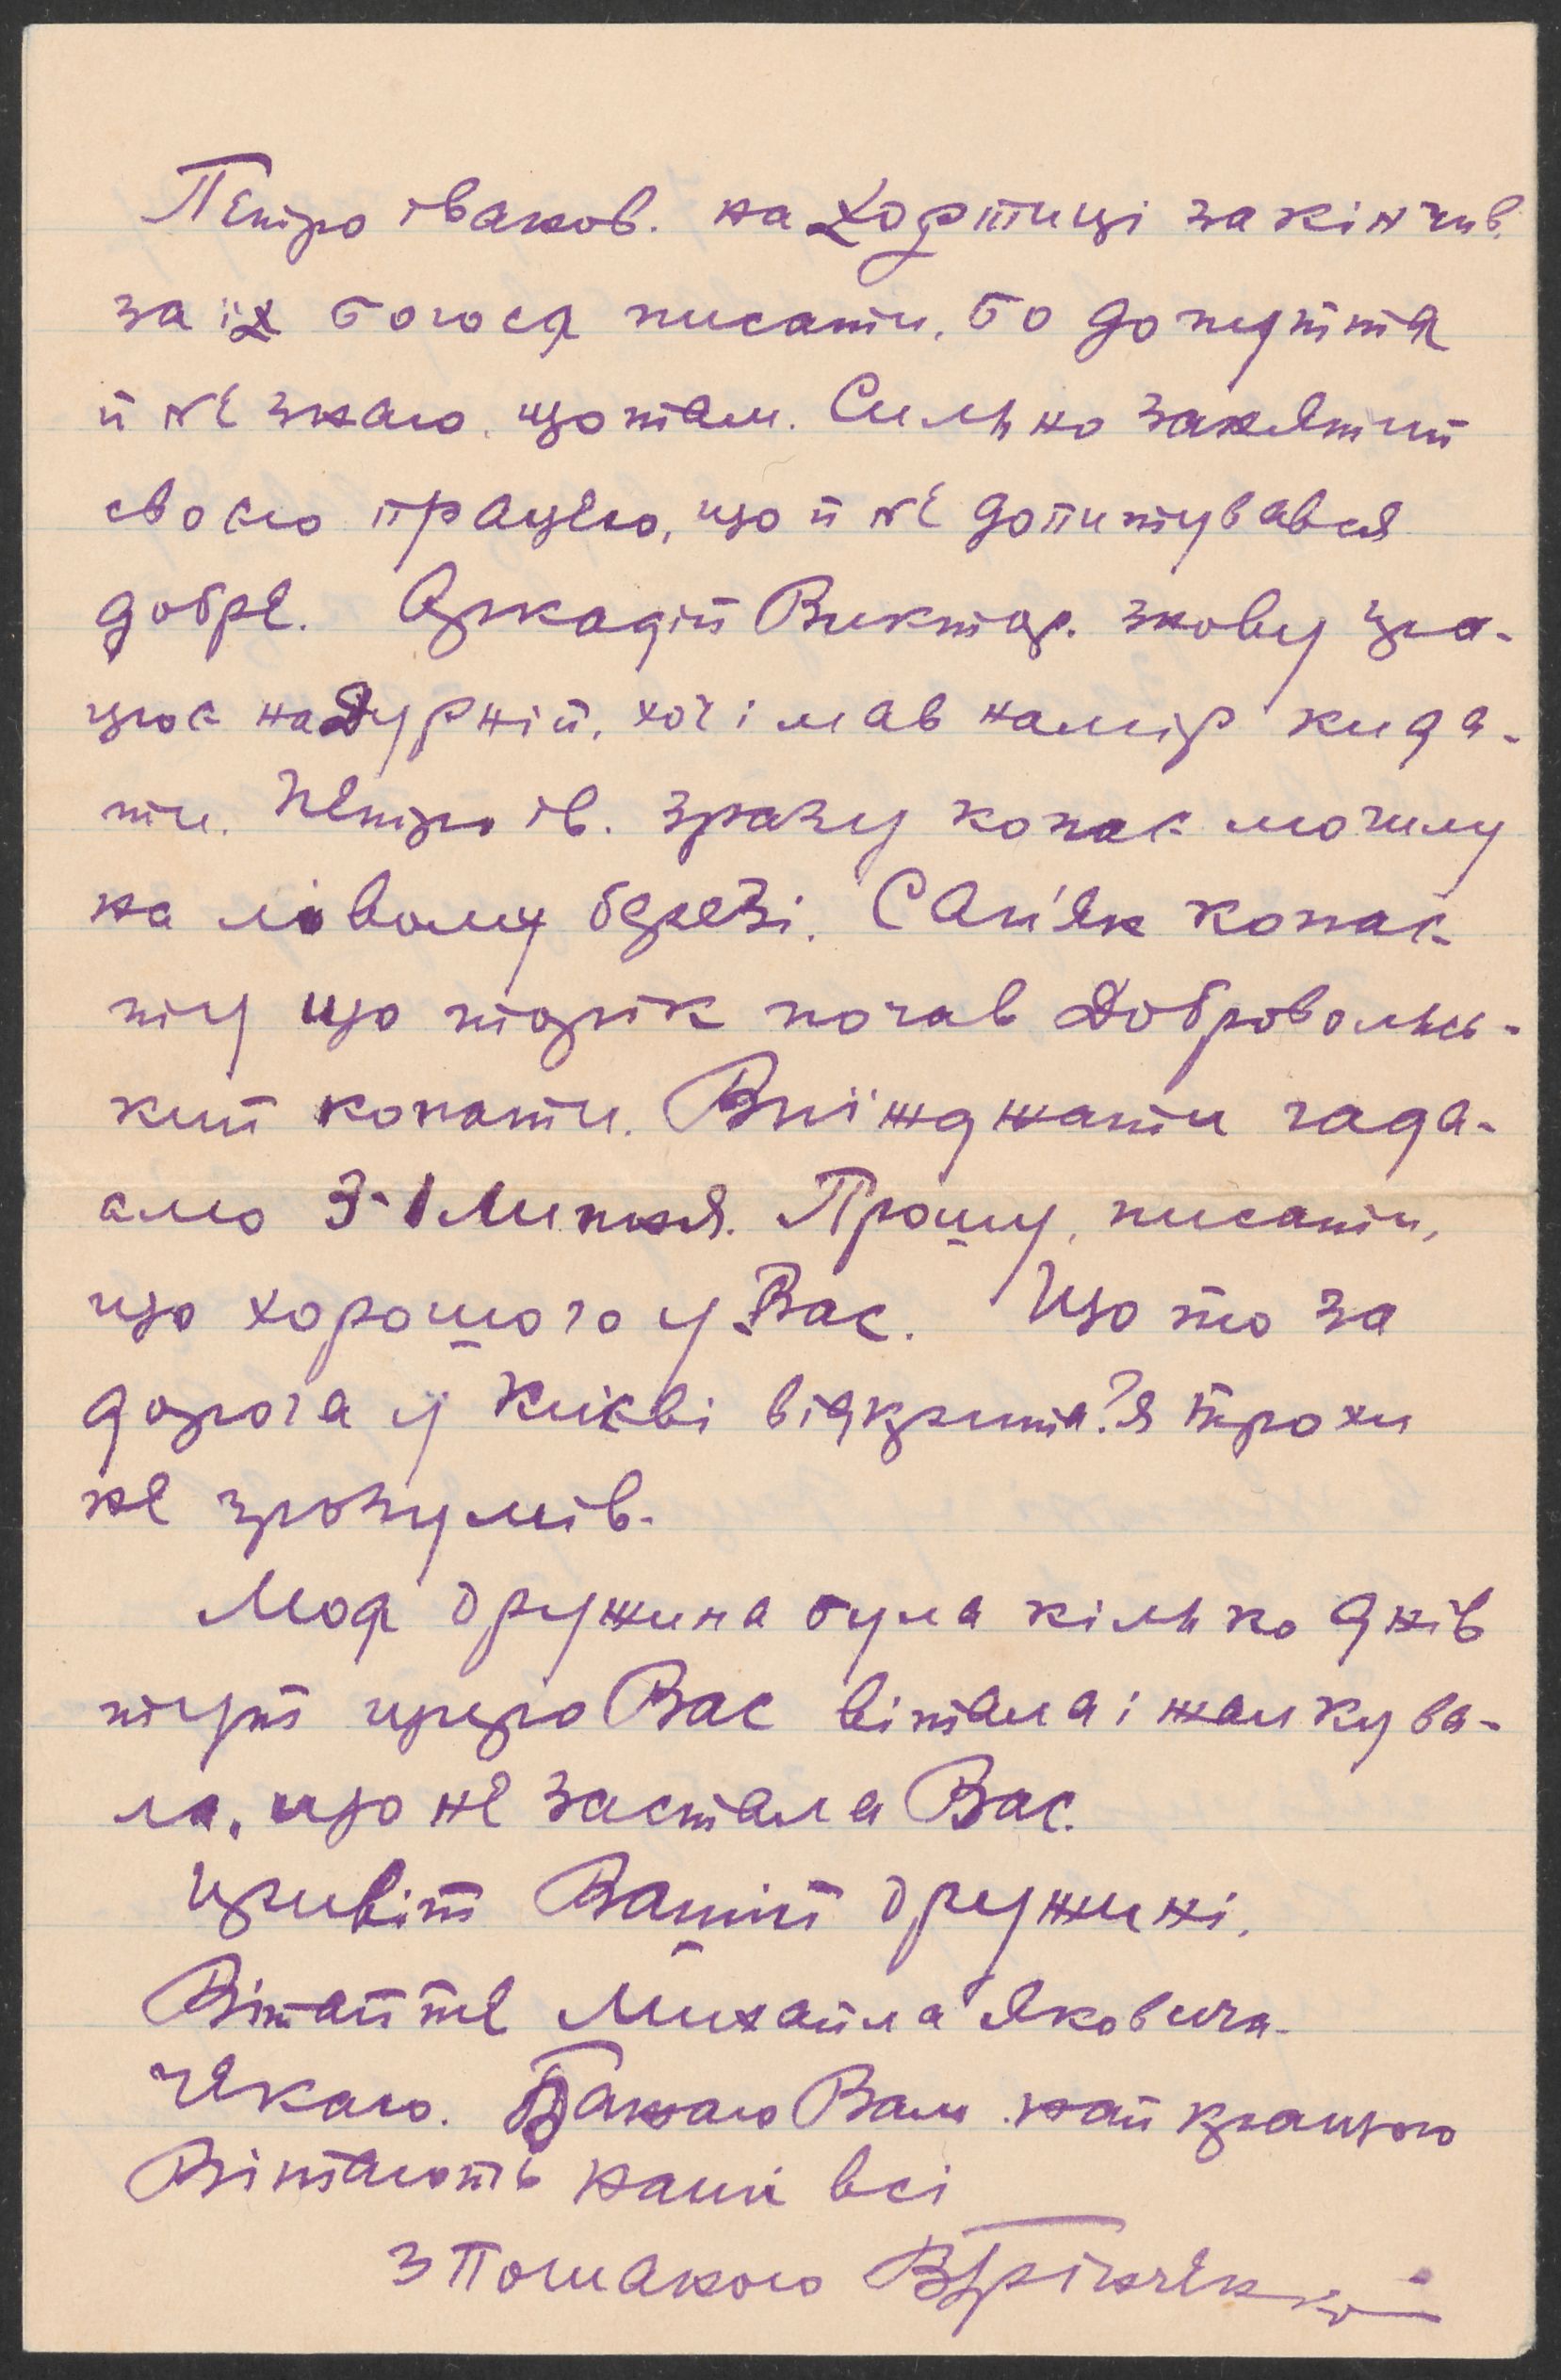 Петро Іванов. на Хортиці закінчив.
за їх боюся писати, бо до пуття
й не знаю, що там. Сильно занятий
своєю працею, що й не допитувався
добре. Аркадій Виктор. знову пра-
цює на Дурній, хоч і мав намір кида-
ти. Петро Ів. зразу копає могилу
на лівому березі. Сап'як копає
ту що торік почав Доброволь-
кий копати. Виїжджати гада-
ємо З-1 Липня. Прошу, писати,
що хорошого у Вас. Що то за
дорога у Києві відкрита? Я трохи
не зрозумів.
Моя дружина була кілька днів
тут щиро Вас вітала і жалкува-
ла, що не застала Вас.
Привіт Вашій дружині.
Вітайте Михайла Яковича.
Чекаю. Бажаю Вам найкращого
Вітають наші всі
З Пошаною В Грінченко